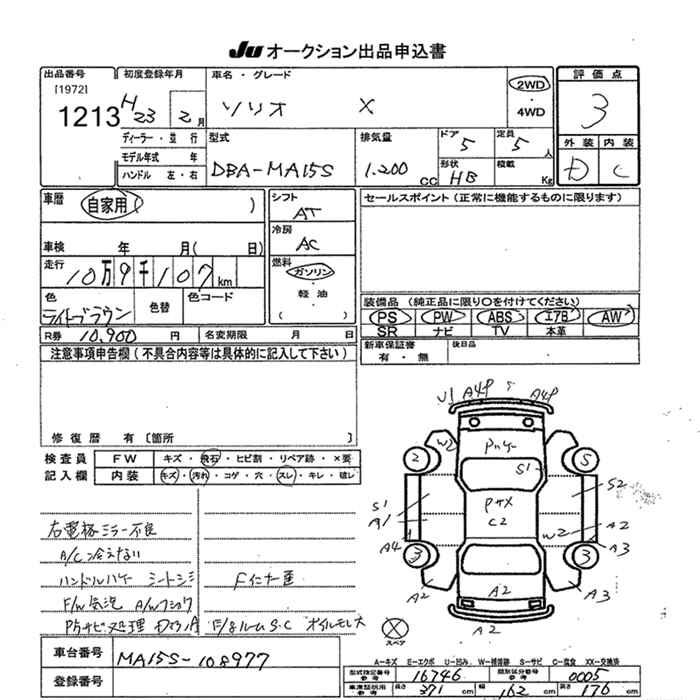 JU オークション出品申込書
出品番号 初度登録年月 車名・グレード 評価点
[1972]
1213 H23 2月 ソリオ X 2WD・4WD 3
ディーラー・並行 型式 排気量 ドア 定員 外装 内装
モデル年式 年 DBA-MA15S 1.200 CC 5 5人 D C
ハンドル 左・右 形状 HB 積載 Kg
車歴 自家用 ( ) シフト AT セールスポイント (正常に機能するものに限ります)
車検 年 月( 日) 冷房 AC
走行 10万9千107km 燃料 ガソリン・軽油・
色 ライトブラウン 色替 色コード
装備品 (純正品に限り○を付けてください)
PS PW ABS エアB AW
SR ナビ TV 本革
R券 10,900 円 名変期限 月 日
新車保証書 有・無 後日品
注意事項申告欄 (不具合内容等は具体的に記入して下さい)
修復歴 有 〔箇所 〕
検査員 FW キズ・飛石・ヒビ割・リペア跡・×要
記入欄 内装 キズ・汚れ・コゲ・穴・スレ・キレ・破レ
右電格ミラー不良
A/C冷えない
ハンドルハゲ シートシミ
F/W気泡 A/Wフショク
F/gルームS・C オイルモレ大
U1 A4P A4P
W2
2 S
S1
S1 S2
A1 C2 W2 A2
A4 A3
3 3
A2 A2 A3
A2
スペア
A-キズ E-エクボ U-凹み W-補修跡 S-サビ C-腐食 XX-交換済
車台番号 MA15S-108977
登録番号
型式指定番号 参考 16746 類別区分番号 参考 0005
車検証諸元 参考 長さ 371cm 幅 162cm 高さ 176cm